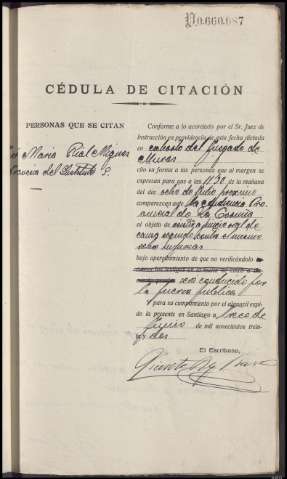 Nº0.660.087
CÉDULA DE CITACIÓN
PERSONAS QUE SE CITAN
María Rial Míguez
del Instituto
Conforme a lo acordado por el Sr. Juez de
Instrucción en providencia de esta fecha dictada
en carta-orden del Juzgado de
Muros
cito en forma a las personas que al margen se
expresan para que a las 11'30 de la mañana
del día ocho de Julio próximo
comparezcan ante la Audiencia Pro-
vincial de La Coruña
al objeto de asistir juicio oral de
causa seguida contra
sobre
bajo apercibimiento de que no verificándolo
será conducido por
la fuerza pública
Y para su cumplimiento por el alguacil expi-
do la presente en Santiago a trece de
Junio de mil novecientos trein-
ta y dos
El Escribano,